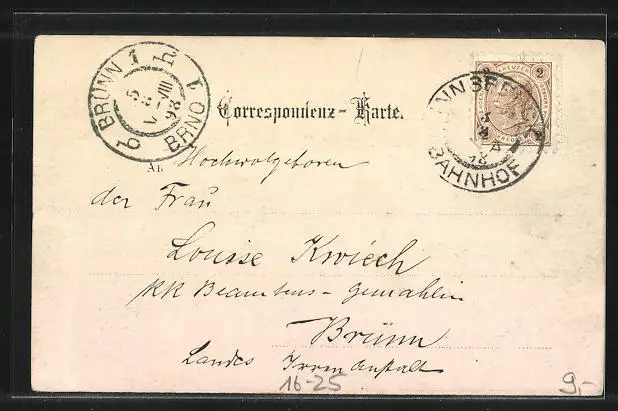 BRÜNN 1 BRNO 1
5
VIII
98
Correspondenz-Karte.
2 KREUZER 2
INNSBRUCK
3
8
98
BAHNHOF
An Hochwolgeboren
der Frau
Louise Kwiech
KK Beamtens-gemahlin
Brünn
Landes Irrenanstalt
16-25
9,-